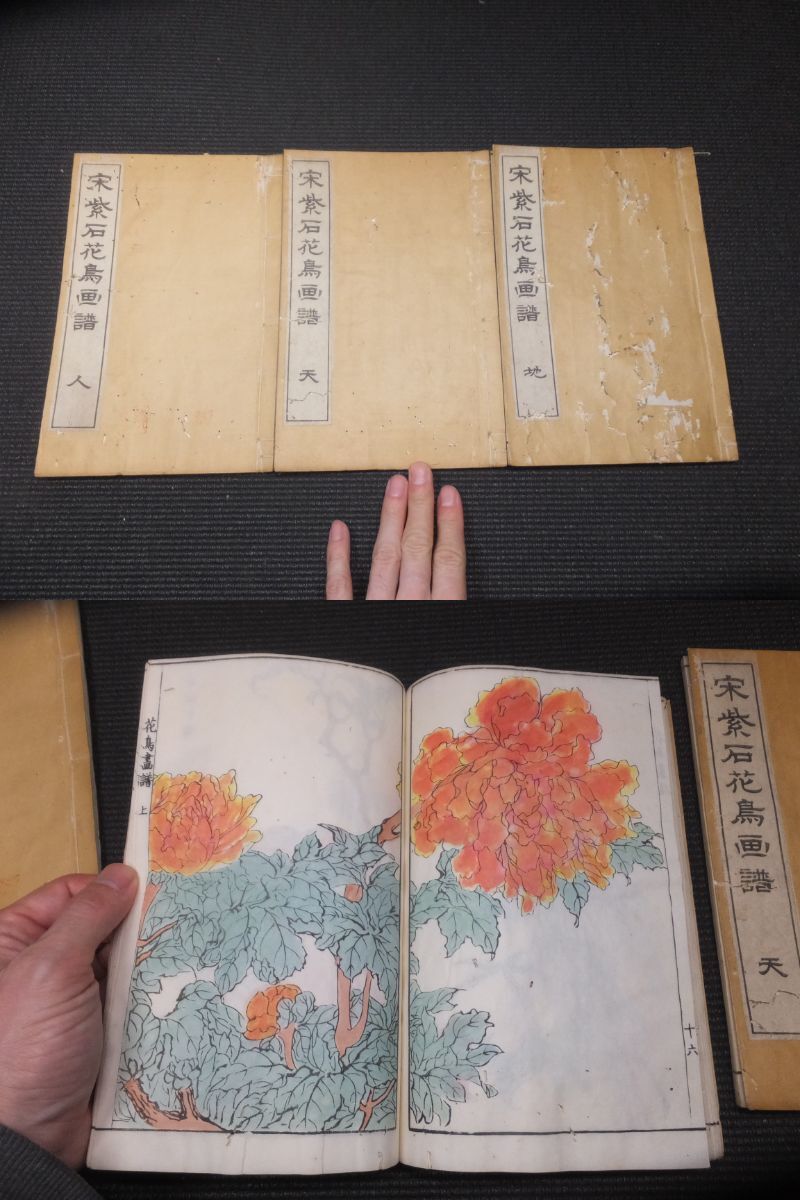 宋紫石花鳥画譜 人
宋紫石花鳥画譜 天
宋紫石花鳥画譜 地
花鳥畫譜 上
十六
宋紫石花鳥画譜 天